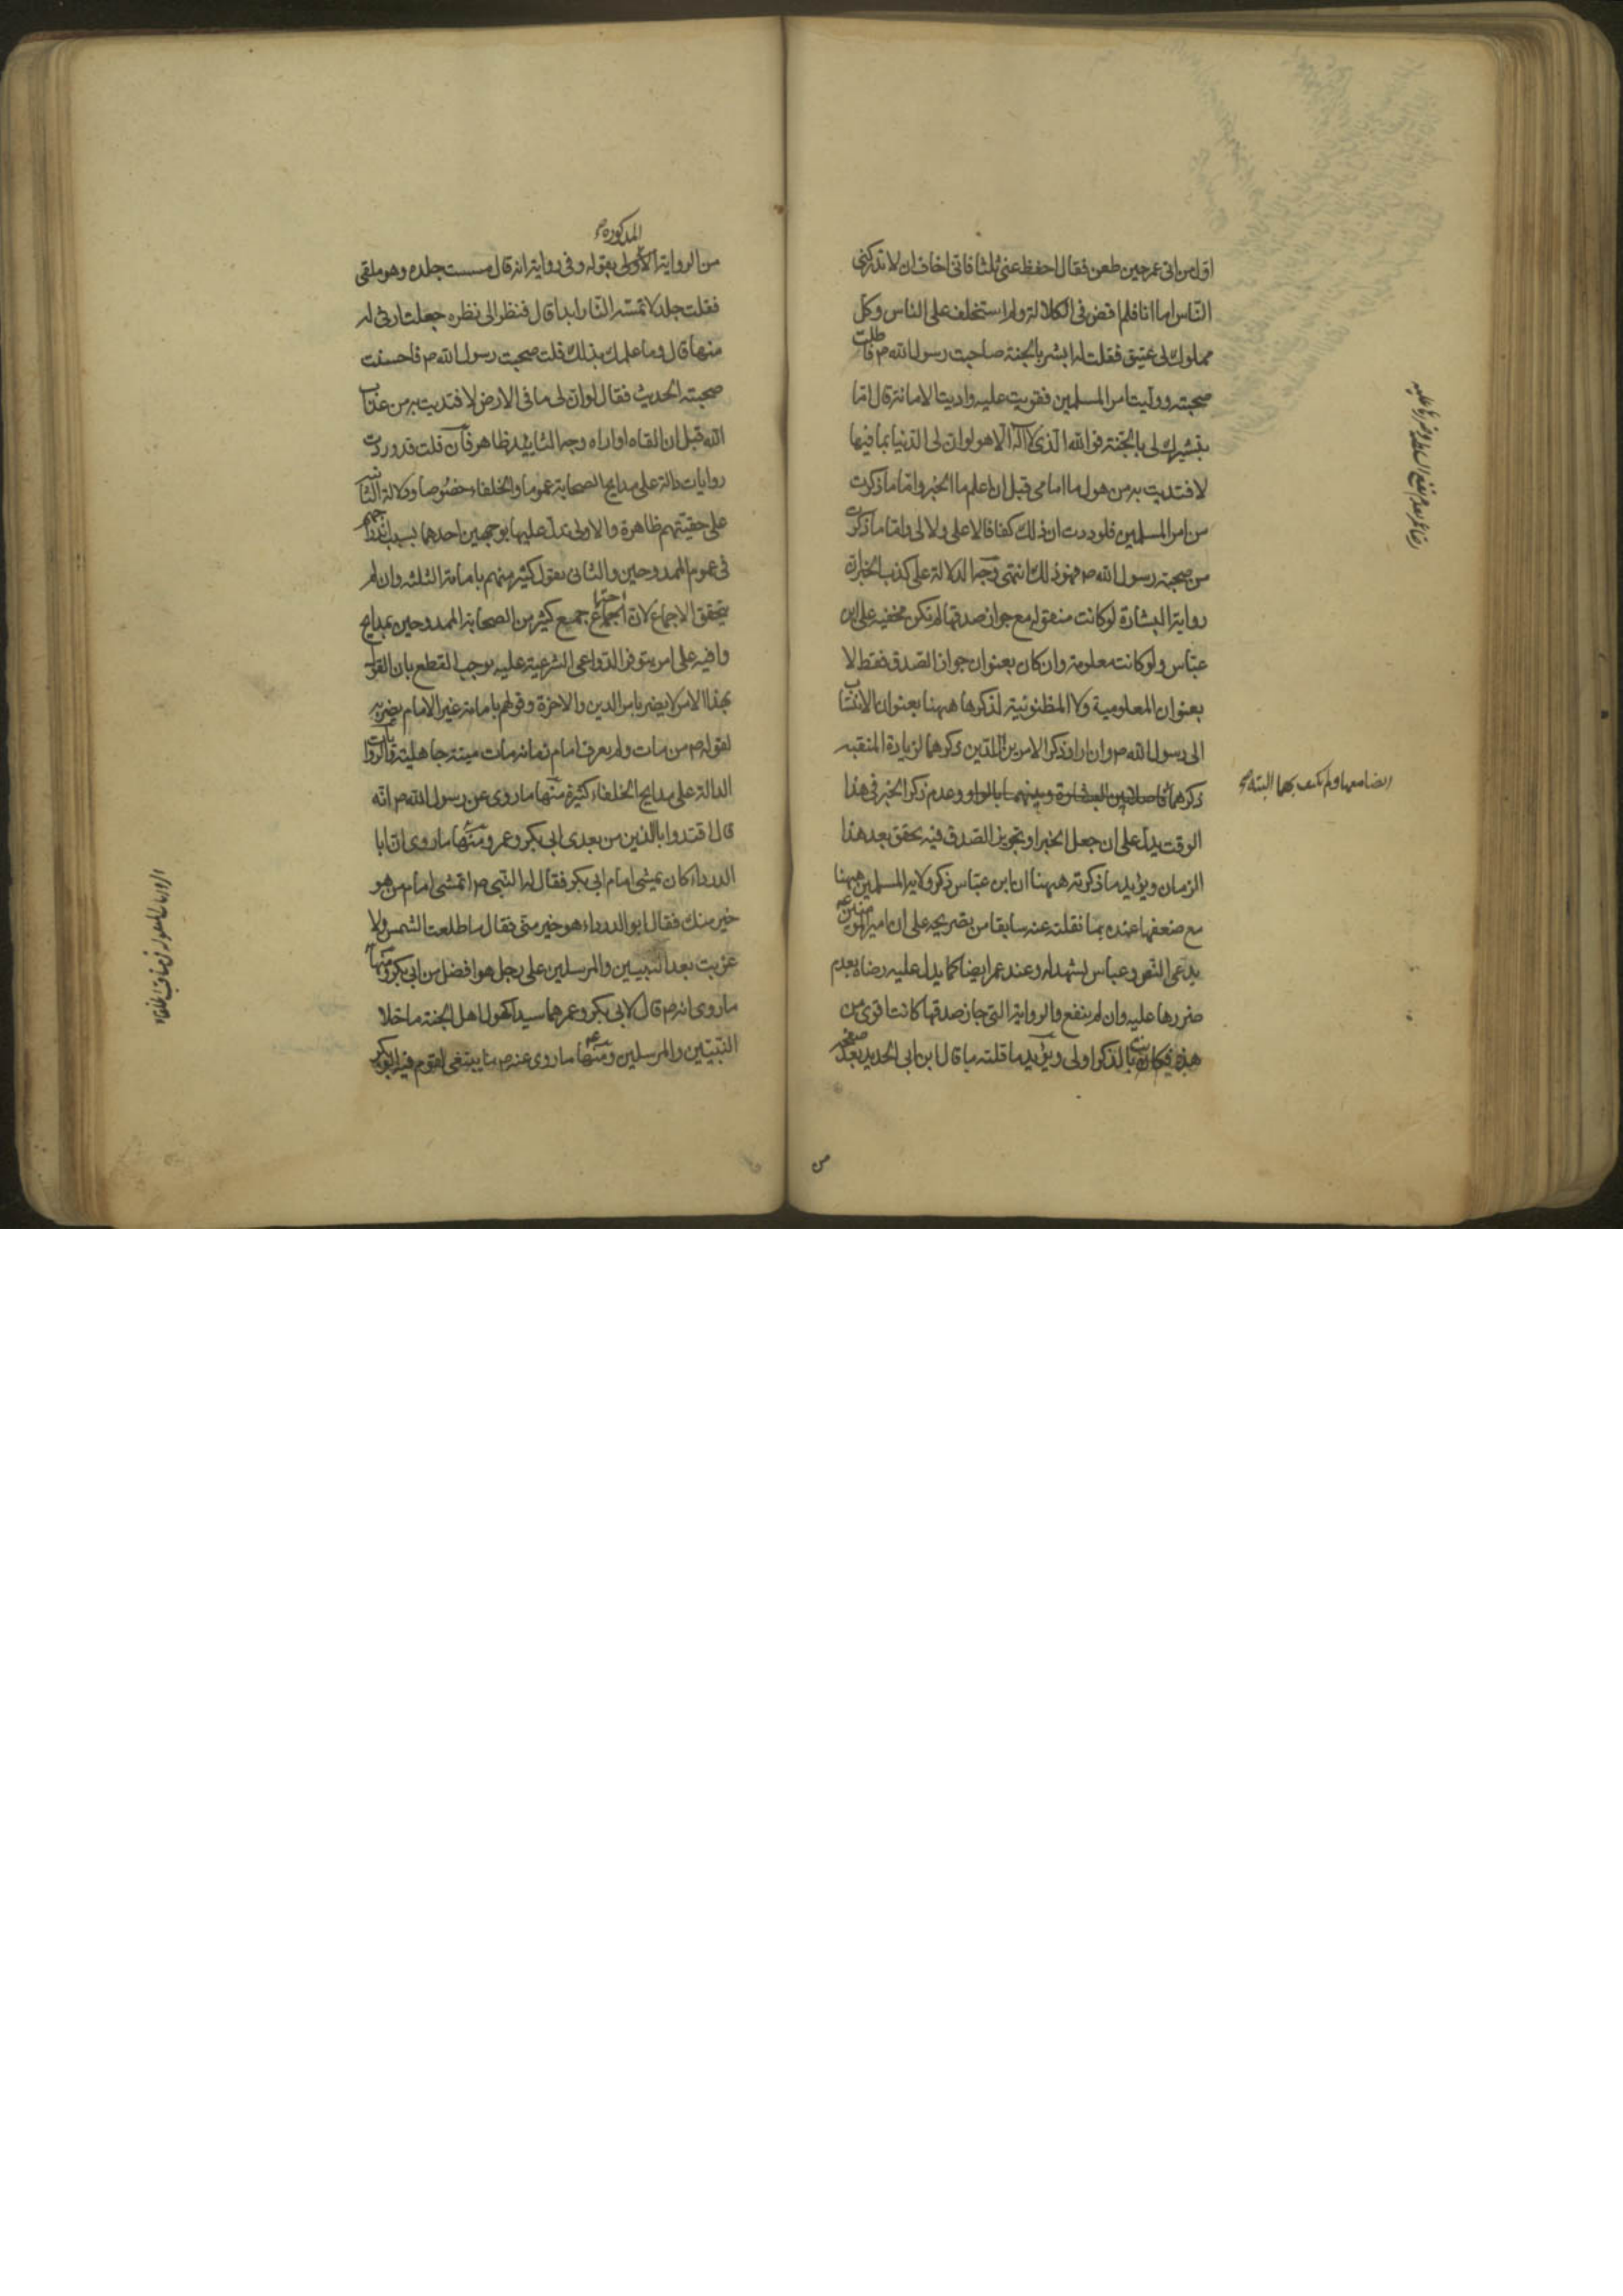 اول من اتى عمر حين طعن فقال احفظ عنى ثلثا فانى اخاف ان لا تدركنى
الناس اما انا فلم اقض فى الكلالة ولم استخلف على الناس وكل
مملوك لى عتيق فقلت له ابشر بالجنة صاحبت رسول الله ص فاطلت
صحبته ووليت امر المسلمين فقويت عليه واديت الامانة قال اما
تبشيرك لى بالجنة فو الله الذى لا اله الا هو لو ان لى الدنيا بما فيها
لافتديت به من هول ما امامى قبل ان اعلم ما الخبر واما ما ذكرت
من امر المسلمين فلوددت ان ذلك كفافا لا على ولا لى واما ما ذكرت
من صحبة رسول الله ص فهو ذلك انتهى وجه الدلالة على كذب الخبر ان
رواية البشارة لو كانت منقولة مع جواز صدقها لم تكن مخفية على ابن
عباس ولو كانت معلومة وان كان بعنوان جواز الصدق فقط لا
بعنوان المعلومية ولا المظنونية لذكرها ههنا بعنوان الانتساب
الى رسول الله ص وان اراد ذكر الامرين اللذين ذكرهما لزيادة المنقبة
ذكرهما
ايضا معها ولم يكتف بهما البتة
وعدم ذكر الخبر فى هذا
الوقت يدل على ان جعل الخبر او تجويز الصدق فيه تحقق بعد هذا
الزمان ويؤيد ما ذكرته ههنا ان ابن عباس ذكر ولاية المسلمين ههنا
مع ضعفها عنده بما نقلته عنه سابقا من تصريحه على ان امير المؤمنين ع
يدعى النص وعباس يشهد له وعند عمر ايضا كما يدل عليه رضاه بعدم
ضررها عليه وان لم ينفع والرواية التى جاز صدقها كانت اقوى من
هذه فكانت بالذكر اولى ويؤيد ما قلته ما قال ابن ابى الحديد بعد صفحة
من
من الرواية الاولى المذكورة بقوله وفى رواية انه قال مسست جلده وهو ملقى
فقلت جلد لا تمسه النار ابدا قال فنظر الى نظرة جعلت ارثى له
منها قال وما علمك بذلك قلت صحبت رسول الله ص فاحسنت
صحبته الحديث فقال لو ان لى ما فى الارض لافتديت به من عذاب
الله قبل ان القاه او اراه وجه التاييد ظاهر فان قلت قد وردت
روايات دالة على مدايح الصحابة عموما والخلفاء خصوصا ودلالة الثانية
على حقيتهم ظاهرة والاولى تدل عليها بوجهين احدهما بسبب اندراجهم
فى عموم الممدوحين والثانى بقول كثير منهم بامامة الثلثة وان لم
يتحقق الاجماع لان اجتماع جميع كثير من الصحابة الممدوحين بمدايح
وافية على امر يتوفر الدواعى الشرعية عليه يوجب القطع بان القول
بهذا الامر لا يضر بامر الدين والاخرة وقولهم بامامة غير الامام يضر به
لقوله ص من مات ولم يعرف امام زمانه مات ميتة جاهلية والروايات
الدالة على مدايح الخلفاء كثيرة منها ما روى عن رسول الله ص انه
قال اقتدوا بالذين من بعدى ابى بكر وعمر ومنها ما روى ان ابا
الدرداء كان يمشى امام ابى بكر فقال له النبى ص اتمشى امام من هو
خير منك فقال ابو الدرداء هو خير منى فقال ما طلعت الشمس ولا
غربت بعد النبيين والمرسلين على رجل هو افضل من ابى بكر ومنها
ما روى انه ص قال لابى بكر وعمر هما سيدا كهول اهل الجنة ما خلا
النبيين والمرسلين ومنها ما روى عنه ص ما ينبغى لقوم فيهم ابو بكر
الروايات المنقولة فى مناقب الخلفاء